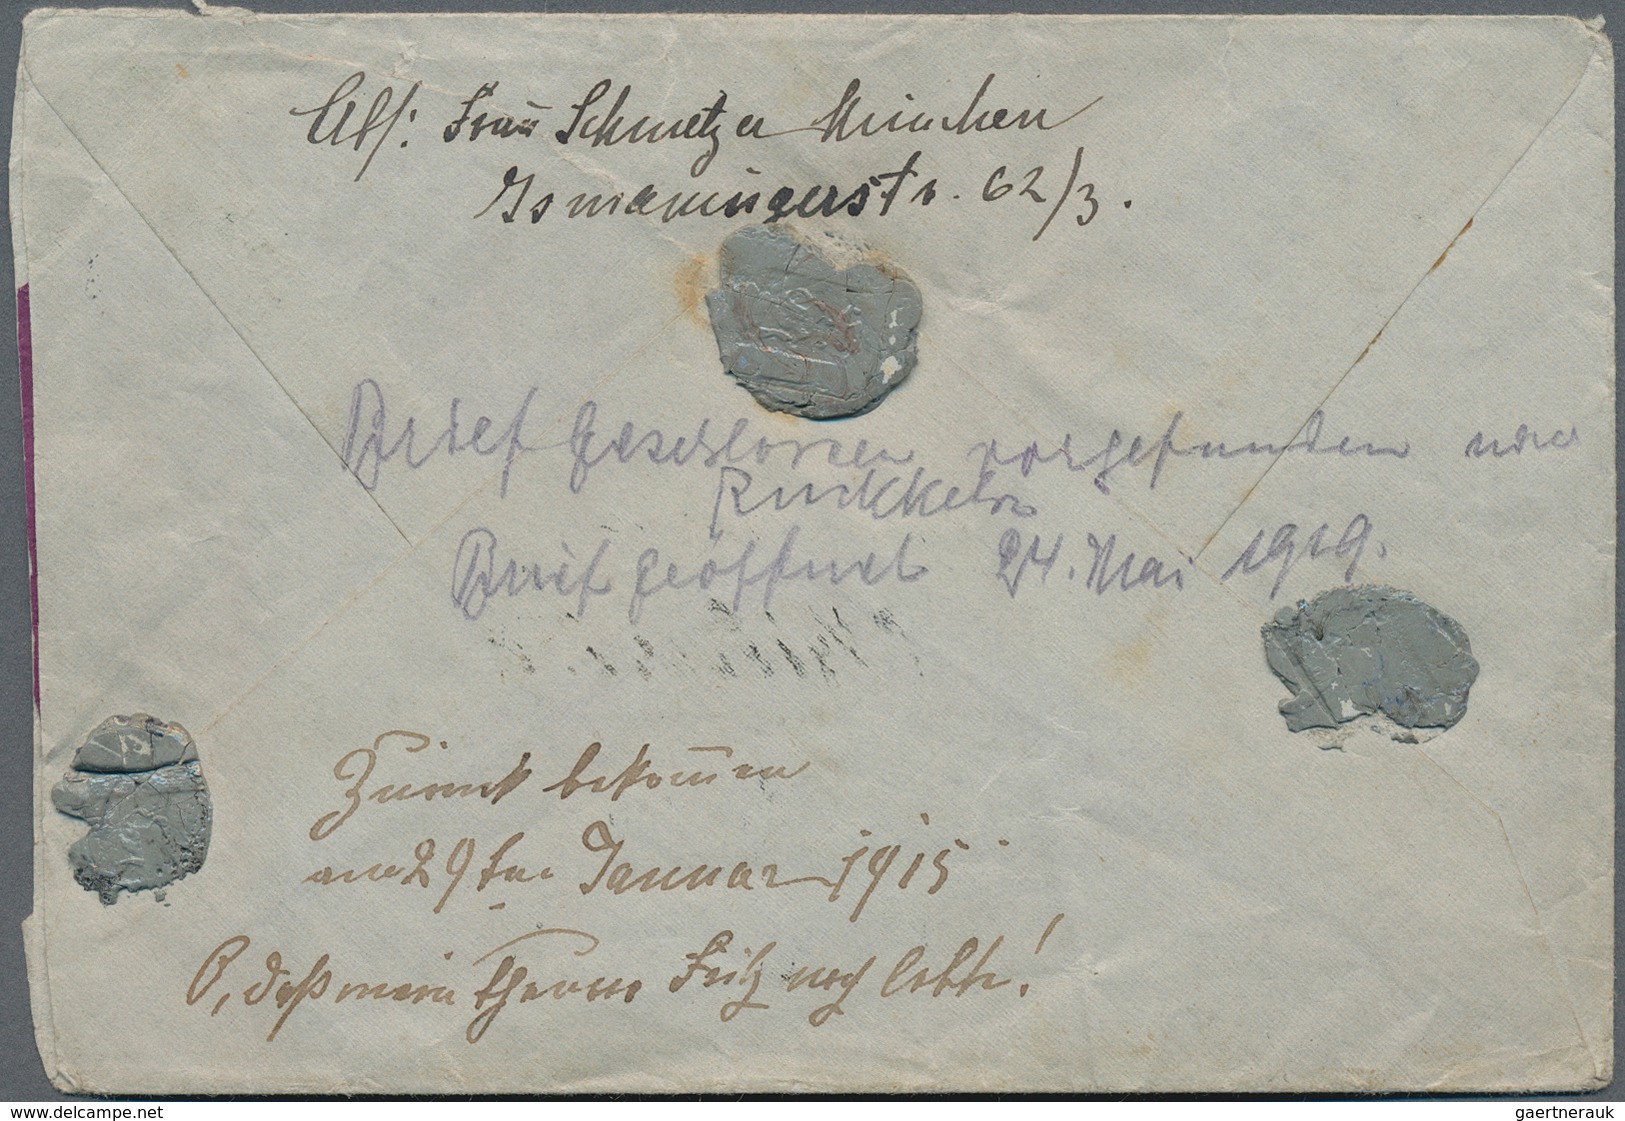 Abs: Frau Schmetzer München
Ismaningerstr. 62/3.
Brief Geschlossen vorgefunden
Rückkehr
Brief Geöffnet 24. Mai 1919.
Zurück bekommen
am 29ten Januar 1915
O, daß mein Fritz noch lebte!
www.delcampe.net
gaertnerauk